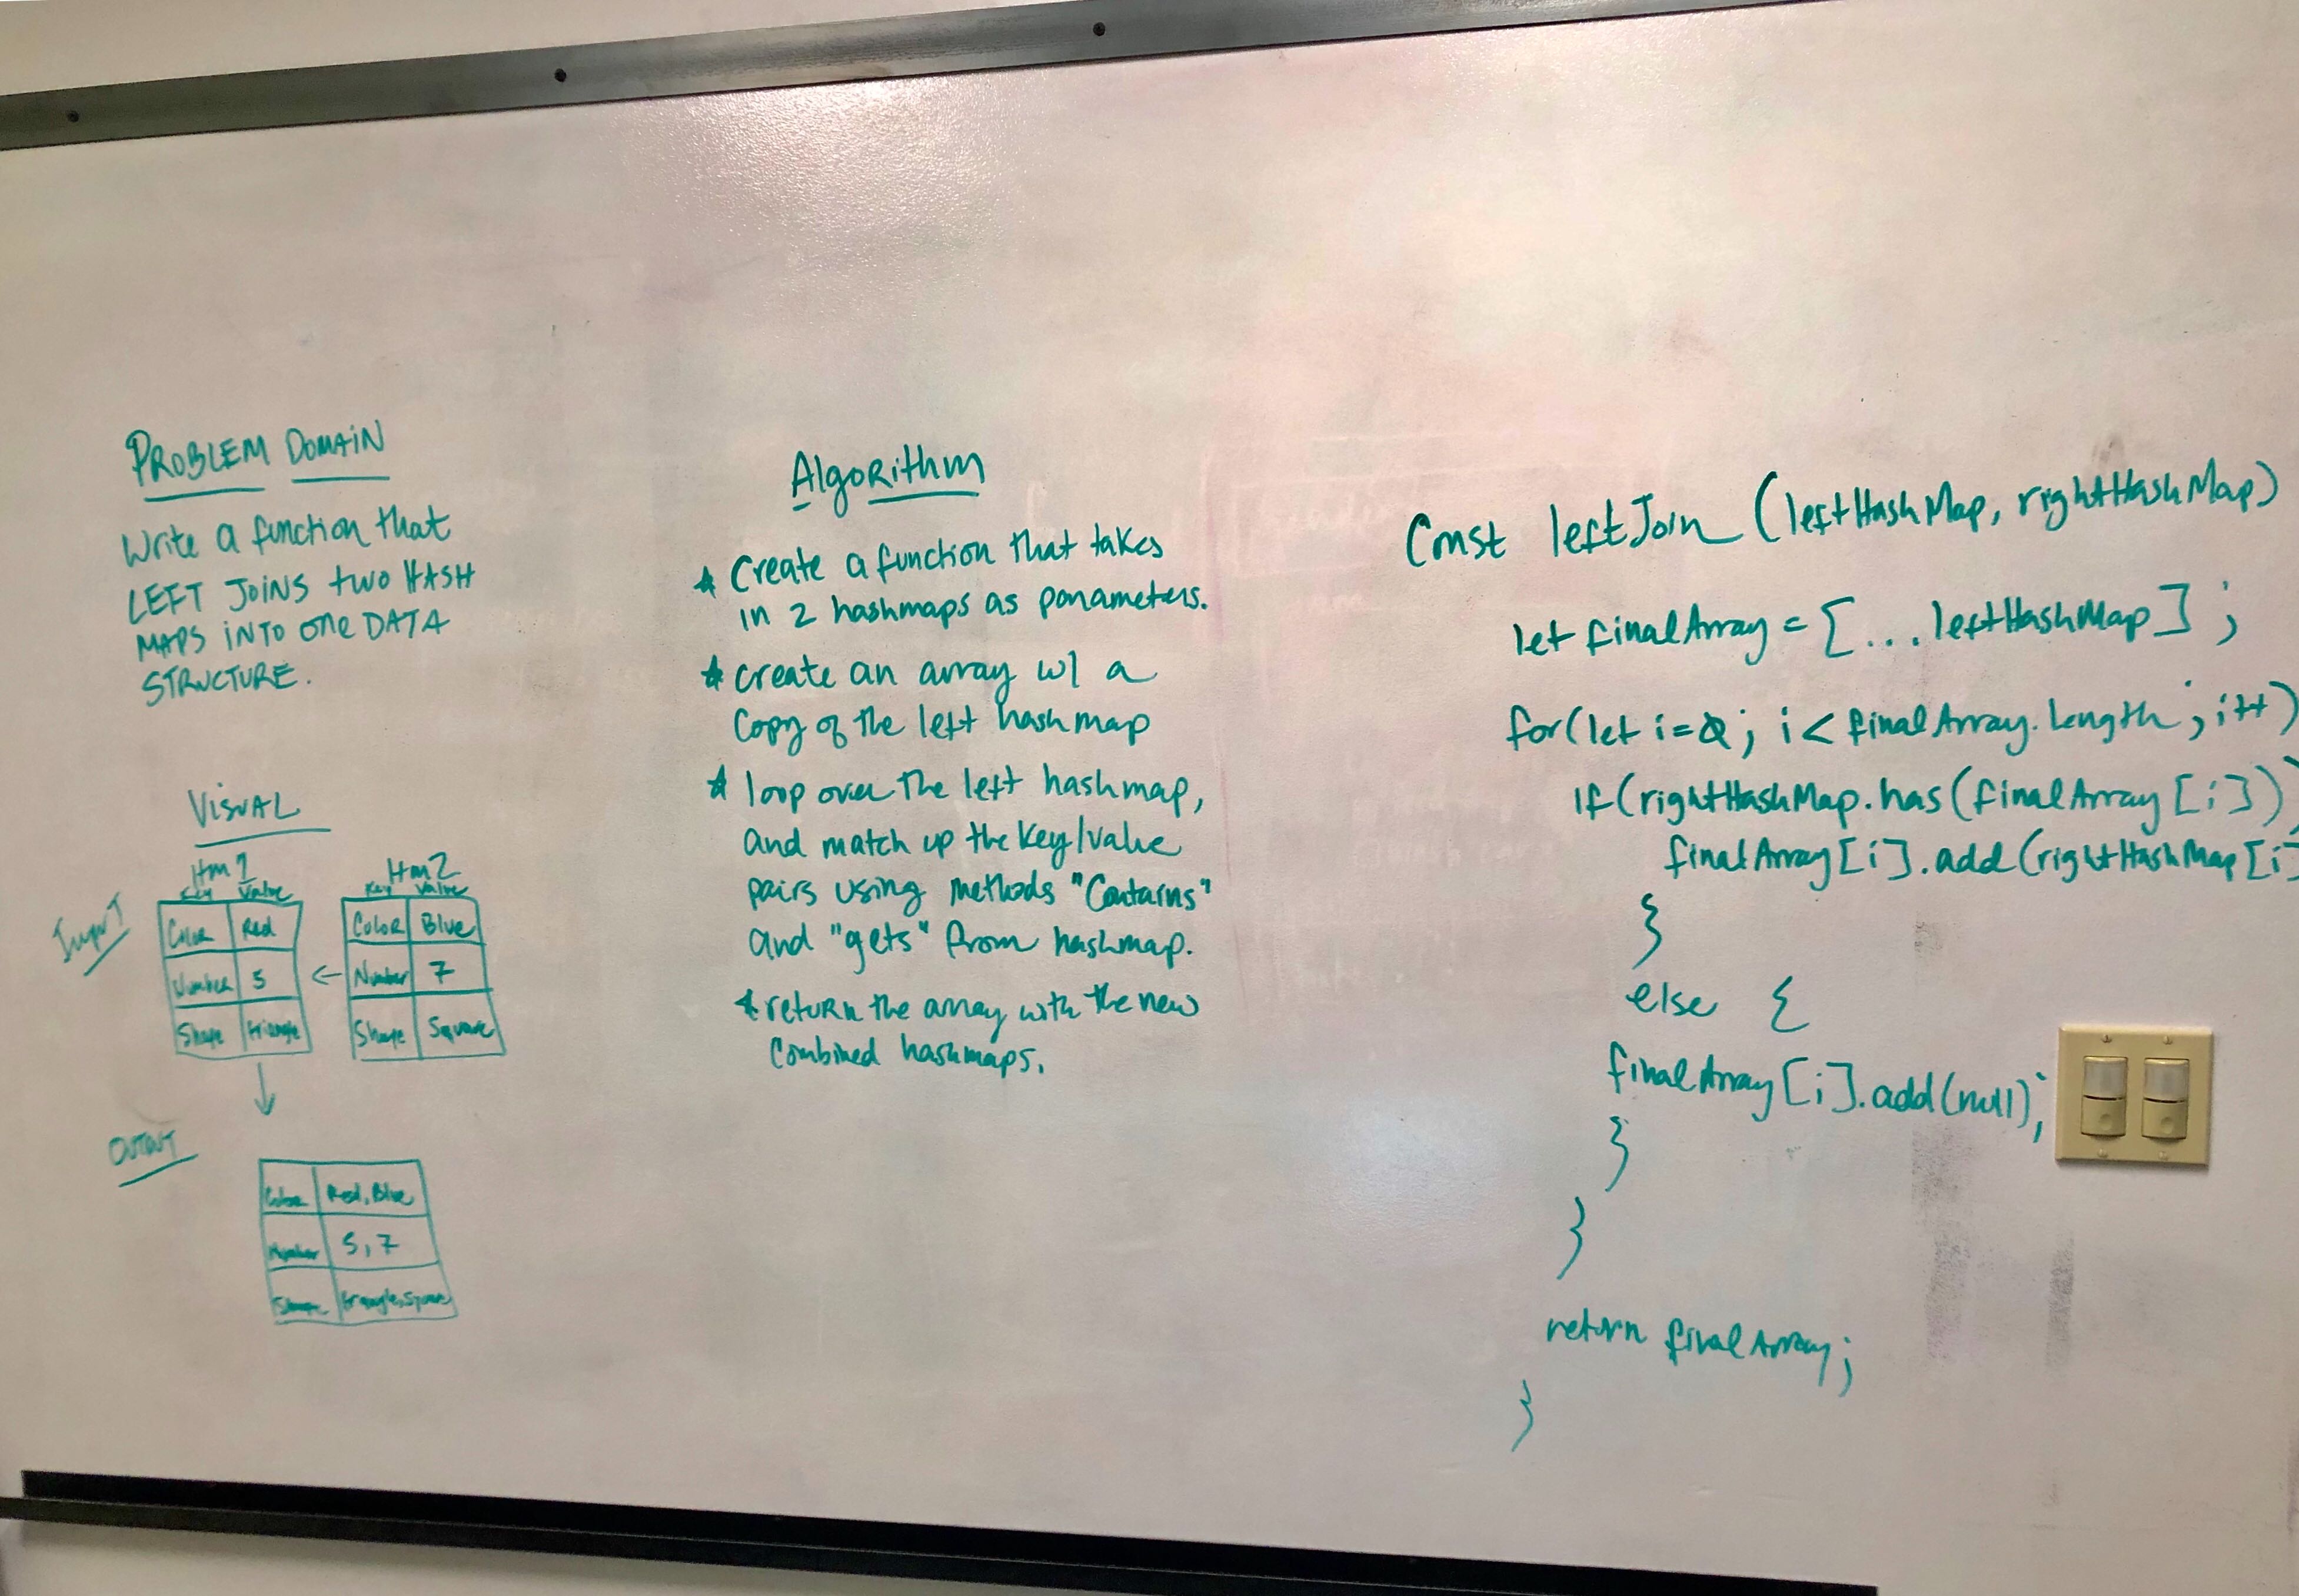 PROBLEM DOMAIN
Write a function that
LEFT JOINS two HASH
MAPS INTO one DATA
STRUCTURE.
VISUAL
Hm 1
Hm2
Key Value
Key Value
INPUT
Color Red
Color Blue
Number 5
←
Number 7
Shape triangle
Shape Square
OUTPUT
Color Red, Blue
Number 5, 7
Shape triangle, Square
Algorithm
* Create a function that takes
in 2 hashmaps as parameters.
* create an array w/ a
copy of the left hashmap
* loop over the left hashmap,
and match up the key/value
pairs using methods "Contains"
and "gets" from hashmap.
* return the array with the new
combined hashmaps.
Const leftJoin (leftHashMap, rightHashMap)
let finalArray = [...leftHashMap];
for(let i=0; i< finalArray.length; i++)
if(rightHashMap.has(finalArray[i]))
finalArray[i].add(rightHashMap[i]
}
else {
finalArray[i].add(null);
}
}
return finalArray;
}